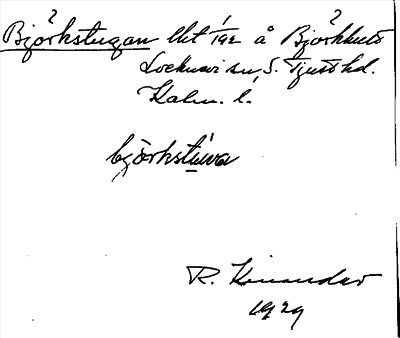 Björkstugan lht 1/192 å Björkhult
Locknevi sn, S. Tjust hd.
Kalm. l.
björkstuva
R. Kinander
1929